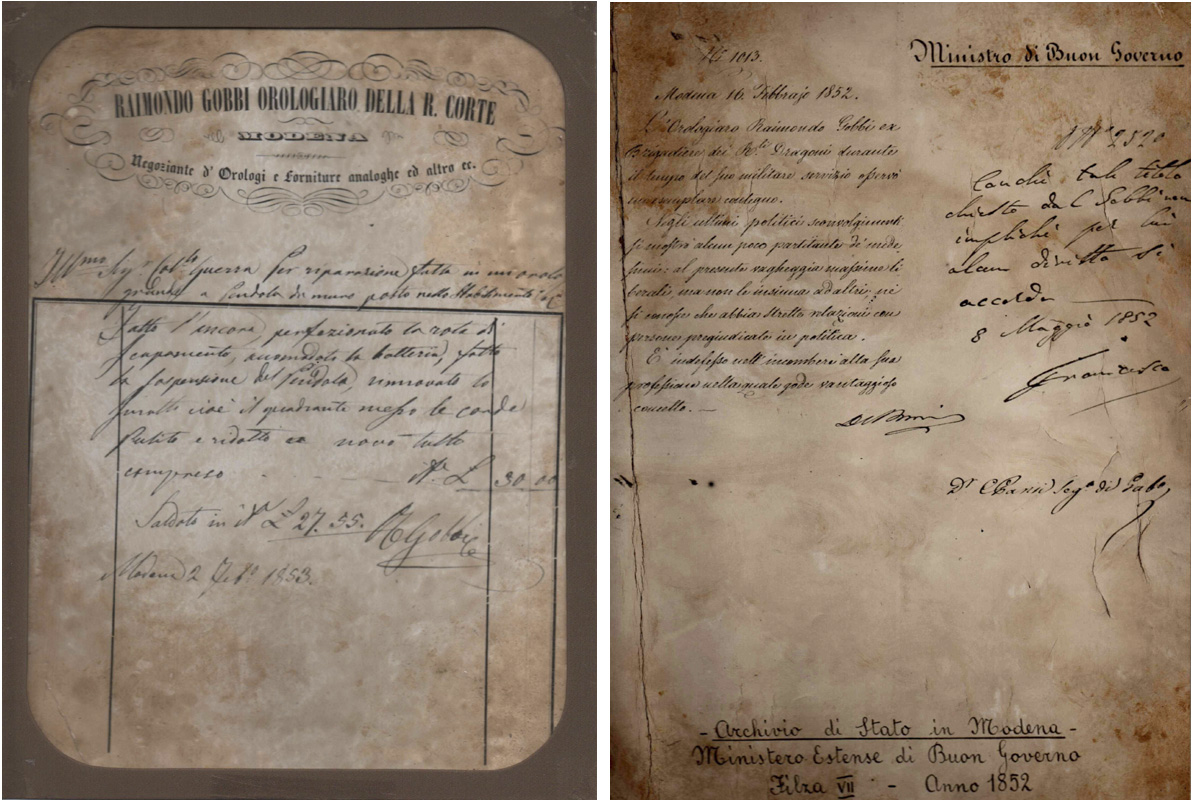 RAIMONDO GOBBI OROLOGIARO DELLA R. CORTE
MODENA
Negoziante d' Orologi e forniture analoghe ed altro ec.
Ill.mo Sig.r guerra per riparazione fatta in un orolo
grande a Pendola da muro posto nello Stabilimento
Fatto l'ancora, perfezionato la rota di
scapamento, la batteria, fatto
la sospensione del Pendolo, rinnovato lo
smalto cioè il quadrante messo le corde
Pulito e ridotto novo tutto
compreso L 30 00
Saldato in L 27.55. R Gobbi
Modena 2 1853.
N. 1013.
Modena 16. Febbrajo 1852.
L'Orologiaro Raimondo Gobbi ex
Brigadiere dei R.li Dragoni durante
il tempo del suo militare servizio
esemplare contegno.
Negli ultimi politici sconvolgimenti
si mostrò alcun poco partitante di
al presente vagheggia massime li
berali, ma non le insinua ad altri, nè
si conosce che abbia strette relazioni con
persone pregiudicate in politica.
E' indefesso nell' incombere alla sua
professione nella quale gode vantaggioso
concetto. —
Ministro di Buon Governo
N° 2520
tale titolo
chiesto dal Gobbi non
implichi per lui
alcun diritto si
accorda
8 Maggio 1852
Francesco
D.r Seg.o di Gab.o
- Archivio di Stato in Modena -
Ministero Estense di Buon Governo
Filza VII - Anno 1852